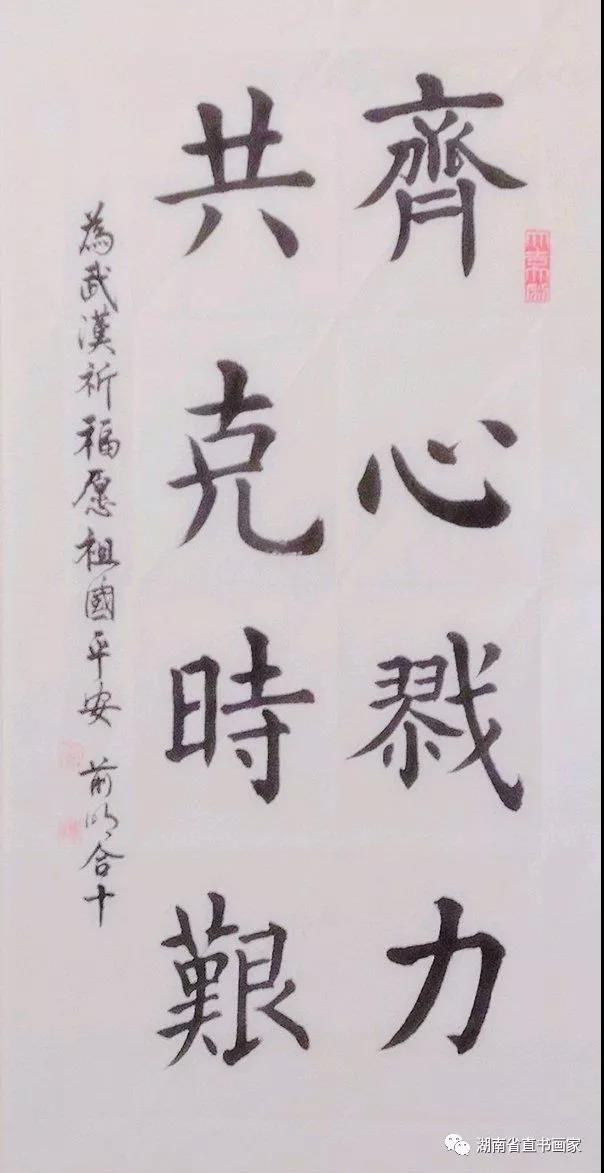 齊心戮力
共克時艱
為武漢祈福愿祖國平安 前明合十
湖南省直书画家